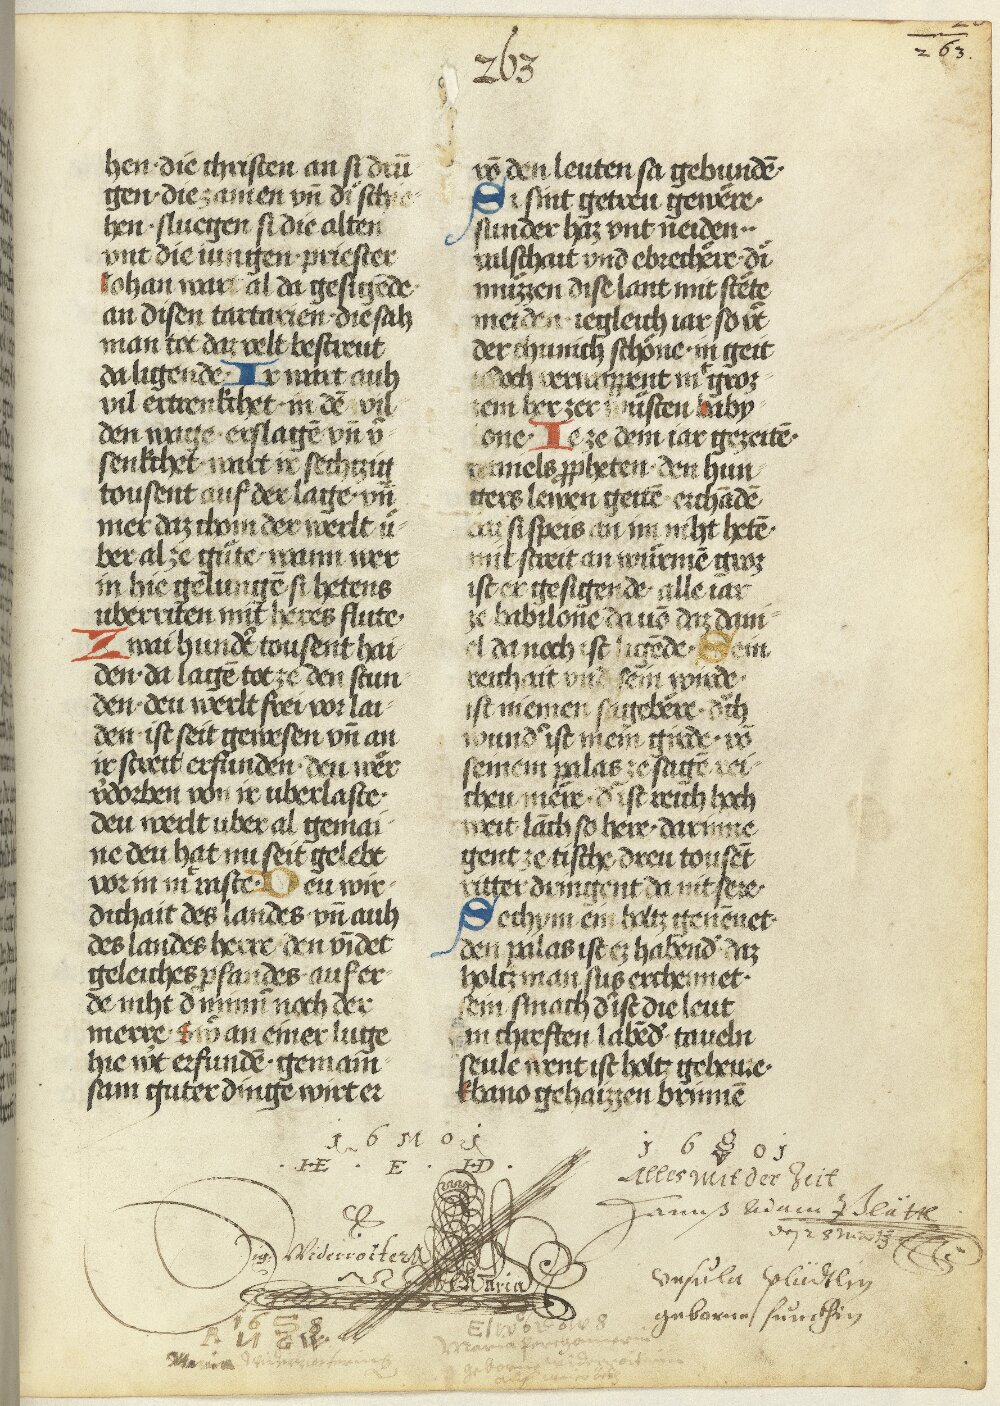 263
263.
hen · die christen an si dru̅
gen · die zamen vn̅ di schie
hen · sluegen si die alten
vnt die iungen · priester
Johan wart al da gesige̅de ·
an disen tartarien · die sah
man tot daz velt bestreut
da ligende · Ir wart auh
vil ertrenkchet · in de̅ wil
den wage · erslage̅ vn̅ v̾
senkchet · wart ir sechtzig
tousent auf der lage · vn̅
mer daz chom der werlt ů
ber al ze gůte · wann wer
in hie gelunge̅ si hetens
uberriten mit heres flute ·
Zwai hund̾t tousent hai
den · da lage̅ tot ze den stun
den · deu werlt frei vor lai
den · ist seit gewesen vn̅ an
ir streit erfunden · den wer
v̾dorben von ir uberlaste ·
deu werlt uber al gemai
ne deu hat nu seit gelebt
vor in in raste · Deu wir
dichait des landes · vn̅ auh
des landes herre · den vindet
geleiches pfandes · auf er
de niht d̾ minn̅ noch der
merre · swo an einer luge
hie w̾t erfunde̅ · gemain
sam guter dinge wirt er
vo̅ den leuten sa gebunde̅ ·
Si sint getreu gewere ·
sunder haz vnt neiden ·
valschait vnd ebrechere · di
müzzen dise lant mit stete
meiden · iegleich iar so v̾t
der chunich schöne · in geit
wol verwappent mit groz
zem her zer wüsten baby
lone · Ie ze dem iar gezeite̅ ·
daniels propheten · den hun
gers lewen geite̅ · erchande̅
daz si speis an im niht hete̅ ·
mit streit an würme̅ groz
ist er gesigende · alle iar
ze babilone da vo̅ daz dani
el da noch ist ligede · Sein
reichait vnd sein wirde ·
ist niemen sagebere · d̾ch
wund̾ ist mein girde · vo̅
seinem palas ze sage̅ rei
cheu mere · d̾ ist reich hoch
weit lanch so here · darinne
gent ze tische dreu touse̅t
ritter dringent da nit sere ·
Sechym ein holtz gene̅net ·
den palas ist ez habend̾ daz
holtz man sus erchennet ·
sein smach d̾ ist die leut
in chreften labe̅d̾ · taveln
seule went ist holtz geheure ·
Ebano gehaizzen brinne̅
1 6 M 0 1
· I·E · E · I·D ·
Widerrötter
Maria
1 6 8 0 1
Alles Mit der Zeit
Hannß Adam
Vrsula Plüdtlin
geborne funckhin
16 8